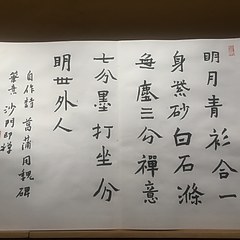 明月青衫合一
身紫砂白石滌
每塵三分禪意
七分墨打坐分
明世外人
自作詩菖蒲用魏碑
筆意沙門印禪